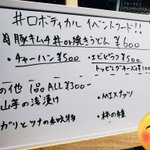 #ロボティカル イベントフード!!
豚キムチ 焼うどん ¥600
・チャーハン ¥500 ・エビピラフ ¥500
トッピングチーズ
の他 1品 ALL ¥300-
山年の浅漬け ・MIXナッツ
ガリとツナの和え物 ・柿の種